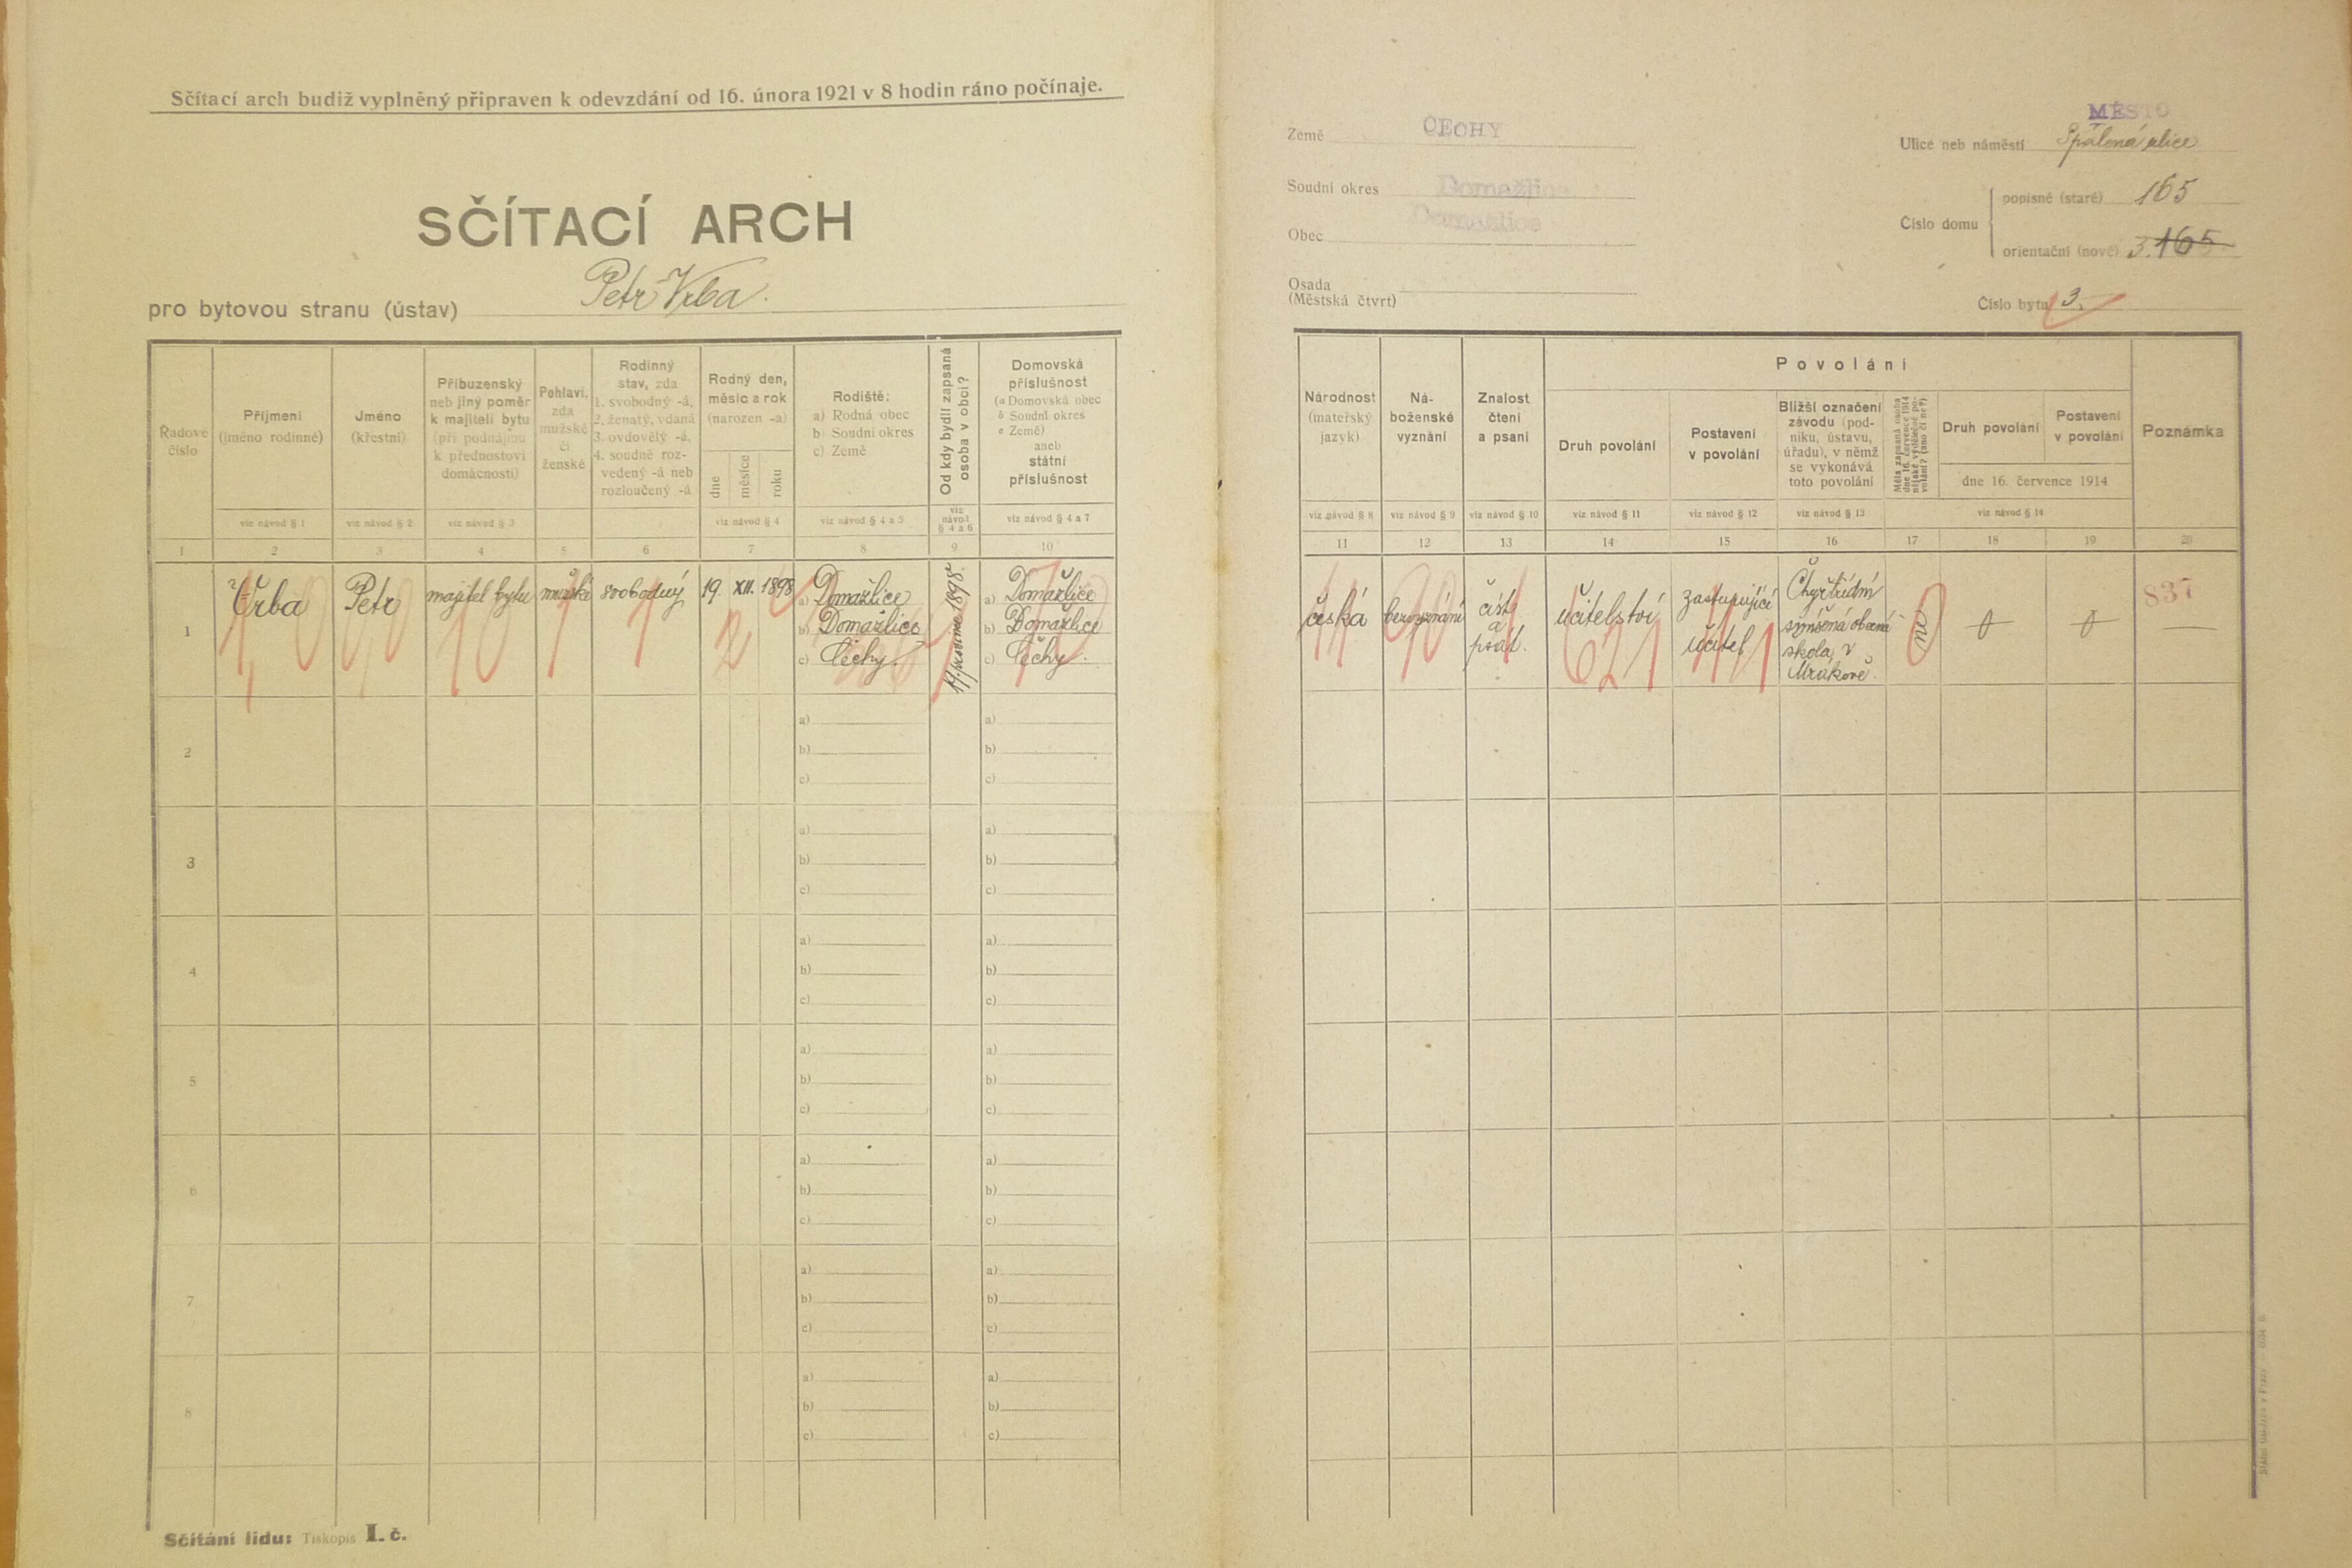 Sčítací arch budiž vyplněný připraven k odevzdání od 16. února 1921 v 8 hodin ráno počínaje.
SČÍTACÍ ARCH
pro bytovou stranu (ústav) Petr Vrba.
Země ČECHY
Soudní okres Domažlice
Obec Domažlice
Osada
(Městská čtvrť)
MĚSTO
Ulice neb náměstí Spálená ulice
Číslo domu
popisné (staré) 165
orientační (nové) 3. 165
Číslo bytu 3.
Řadové
číslo
Příjmení
(jméno rodinné)
viz návod § 1
Jméno
(křestní)
viz návod § 2
Příbuzenský
neb jiný poměr
k majiteli bytu
(při podnájmu
k přednostovi
domácnosti)
viz návod § 3
Pohlaví,
zda
mužské
či
ženské
Rodinný
stav, zda
1. svobodný -á,
2. ženatý, vdaná
3. ovdovělý -á,
4. soudně roz-
vedený -á neb
rozloučený -á
Rodný den,
měsíc a rok
(narozen -a)
dne
měsíce
roku
viz návod § 4
Rodiště:
a) Rodná obec
b) Soudní okres
c) Země
viz návod § 4 a 5
Od kdy bydlí zapsaná
osoba v obci?
viz
návod
§ 4 a 6
Domovská
příslušnost
(a Domovská obec
b Soudní okres
c Země)
aneb
státní
příslušnost
viz návod § 4 a 7
Národnost
(mateřský
jazyk)
viz návod § 8
Ná-
boženské
vyznání
viz návod § 9
Znalost
čtení
a psaní
viz návod § 10
Povolání
Druh povolání
viz návod § 11
Postavení
v povolání
viz návod § 12
Bližší označení
závodu (pod-
niku, ústavu,
úřadu), v němž
se vykonává
toto povolání
viz návod § 13
Měla zapsaná osoba
dne 16. července 1914
nějaké výdělečné po-
volání? (ano či ne?)
Druh povolání
Postavení
v povolání
dne 16. července 1914
viz návod § 14
Poznámka
1 2 3 4 5 6 7 8 9 10
11 12 13 14 15 16 17 18 19 20
1
Vrba
Petr
majitel bytu
mužské
svobodný
19. XII. 1898
a) Domažlice
b) Domažlice
c) Čechy.
19. prosince 1898.
a) Domažlice
b) Domažlice
c) Čechy.
česká
bez vyznání
číst
a
psát.
učitelství
zastupující
učitel
Čtyřtřídní
smíšená obecná
škola v
Mrákově.
ne
0
0
837
—
2
a)
b)
c)
a)
b)
c)
3
a)
b)
c)
a)
b)
c)
4
a)
b)
c)
a)
b)
c)
5
a)
b)
c)
a)
b)
c)
6
a)
b)
c)
a)
b)
c)
7
a)
b)
c)
a)
b)
c)
8
a)
b)
c)
a)
b)
c)
Sčítání lidu: Tiskopis I. č.